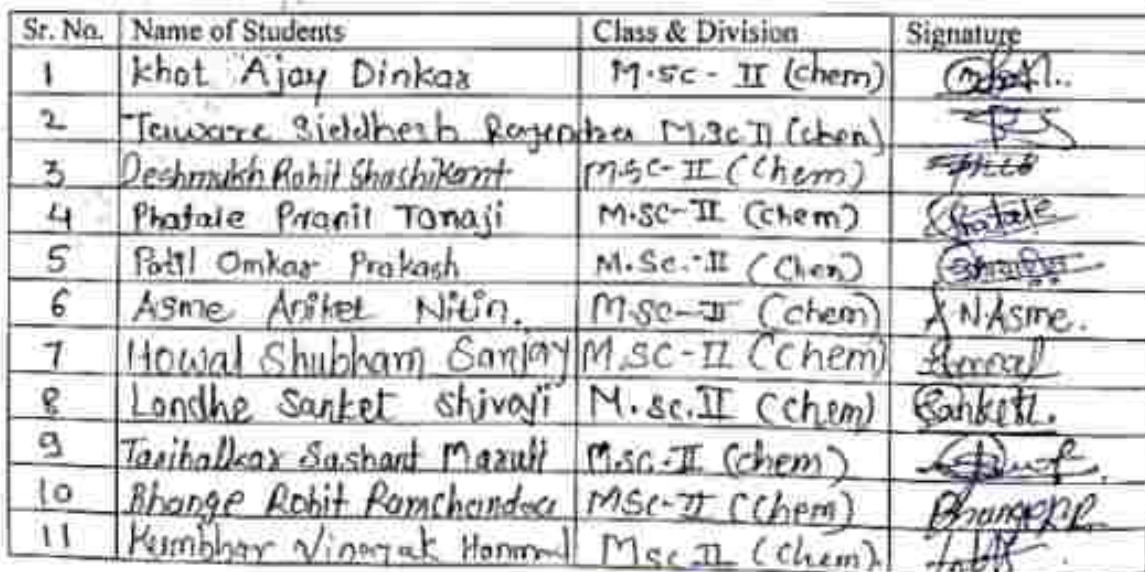 Sr. No. Name of Students Class & Division Signature
1 Khot Ajay Dinkar M.sc - II (chem)
2 Taware Siddhesh Rajendra M.Sc II (chem)
3 Deshmukh Rohit Shashikant M.Sc-II (Chem)
4 Phatale Pranil Tanaji M.SC-II (Chem) Phatale
5 Patil Omkar Prakash M.Sc.-II (Chem)
6 Asme Aniket Nitin. M.SC-II (Chem) A N.Asme.
7 Howal Shubham Sanjay M.SC-II (Chem) Howal
8 Londhe Sanket Shivaji M.Sc.II (Chem) Sanket
9 Tarihalkar Sashant Maruti M.Sc.-II (chem)
10 Bhange Rohit Ramchandra MSc-II (Chem)
11 Kumbhar Vinayak M.Sc.II (Chem)